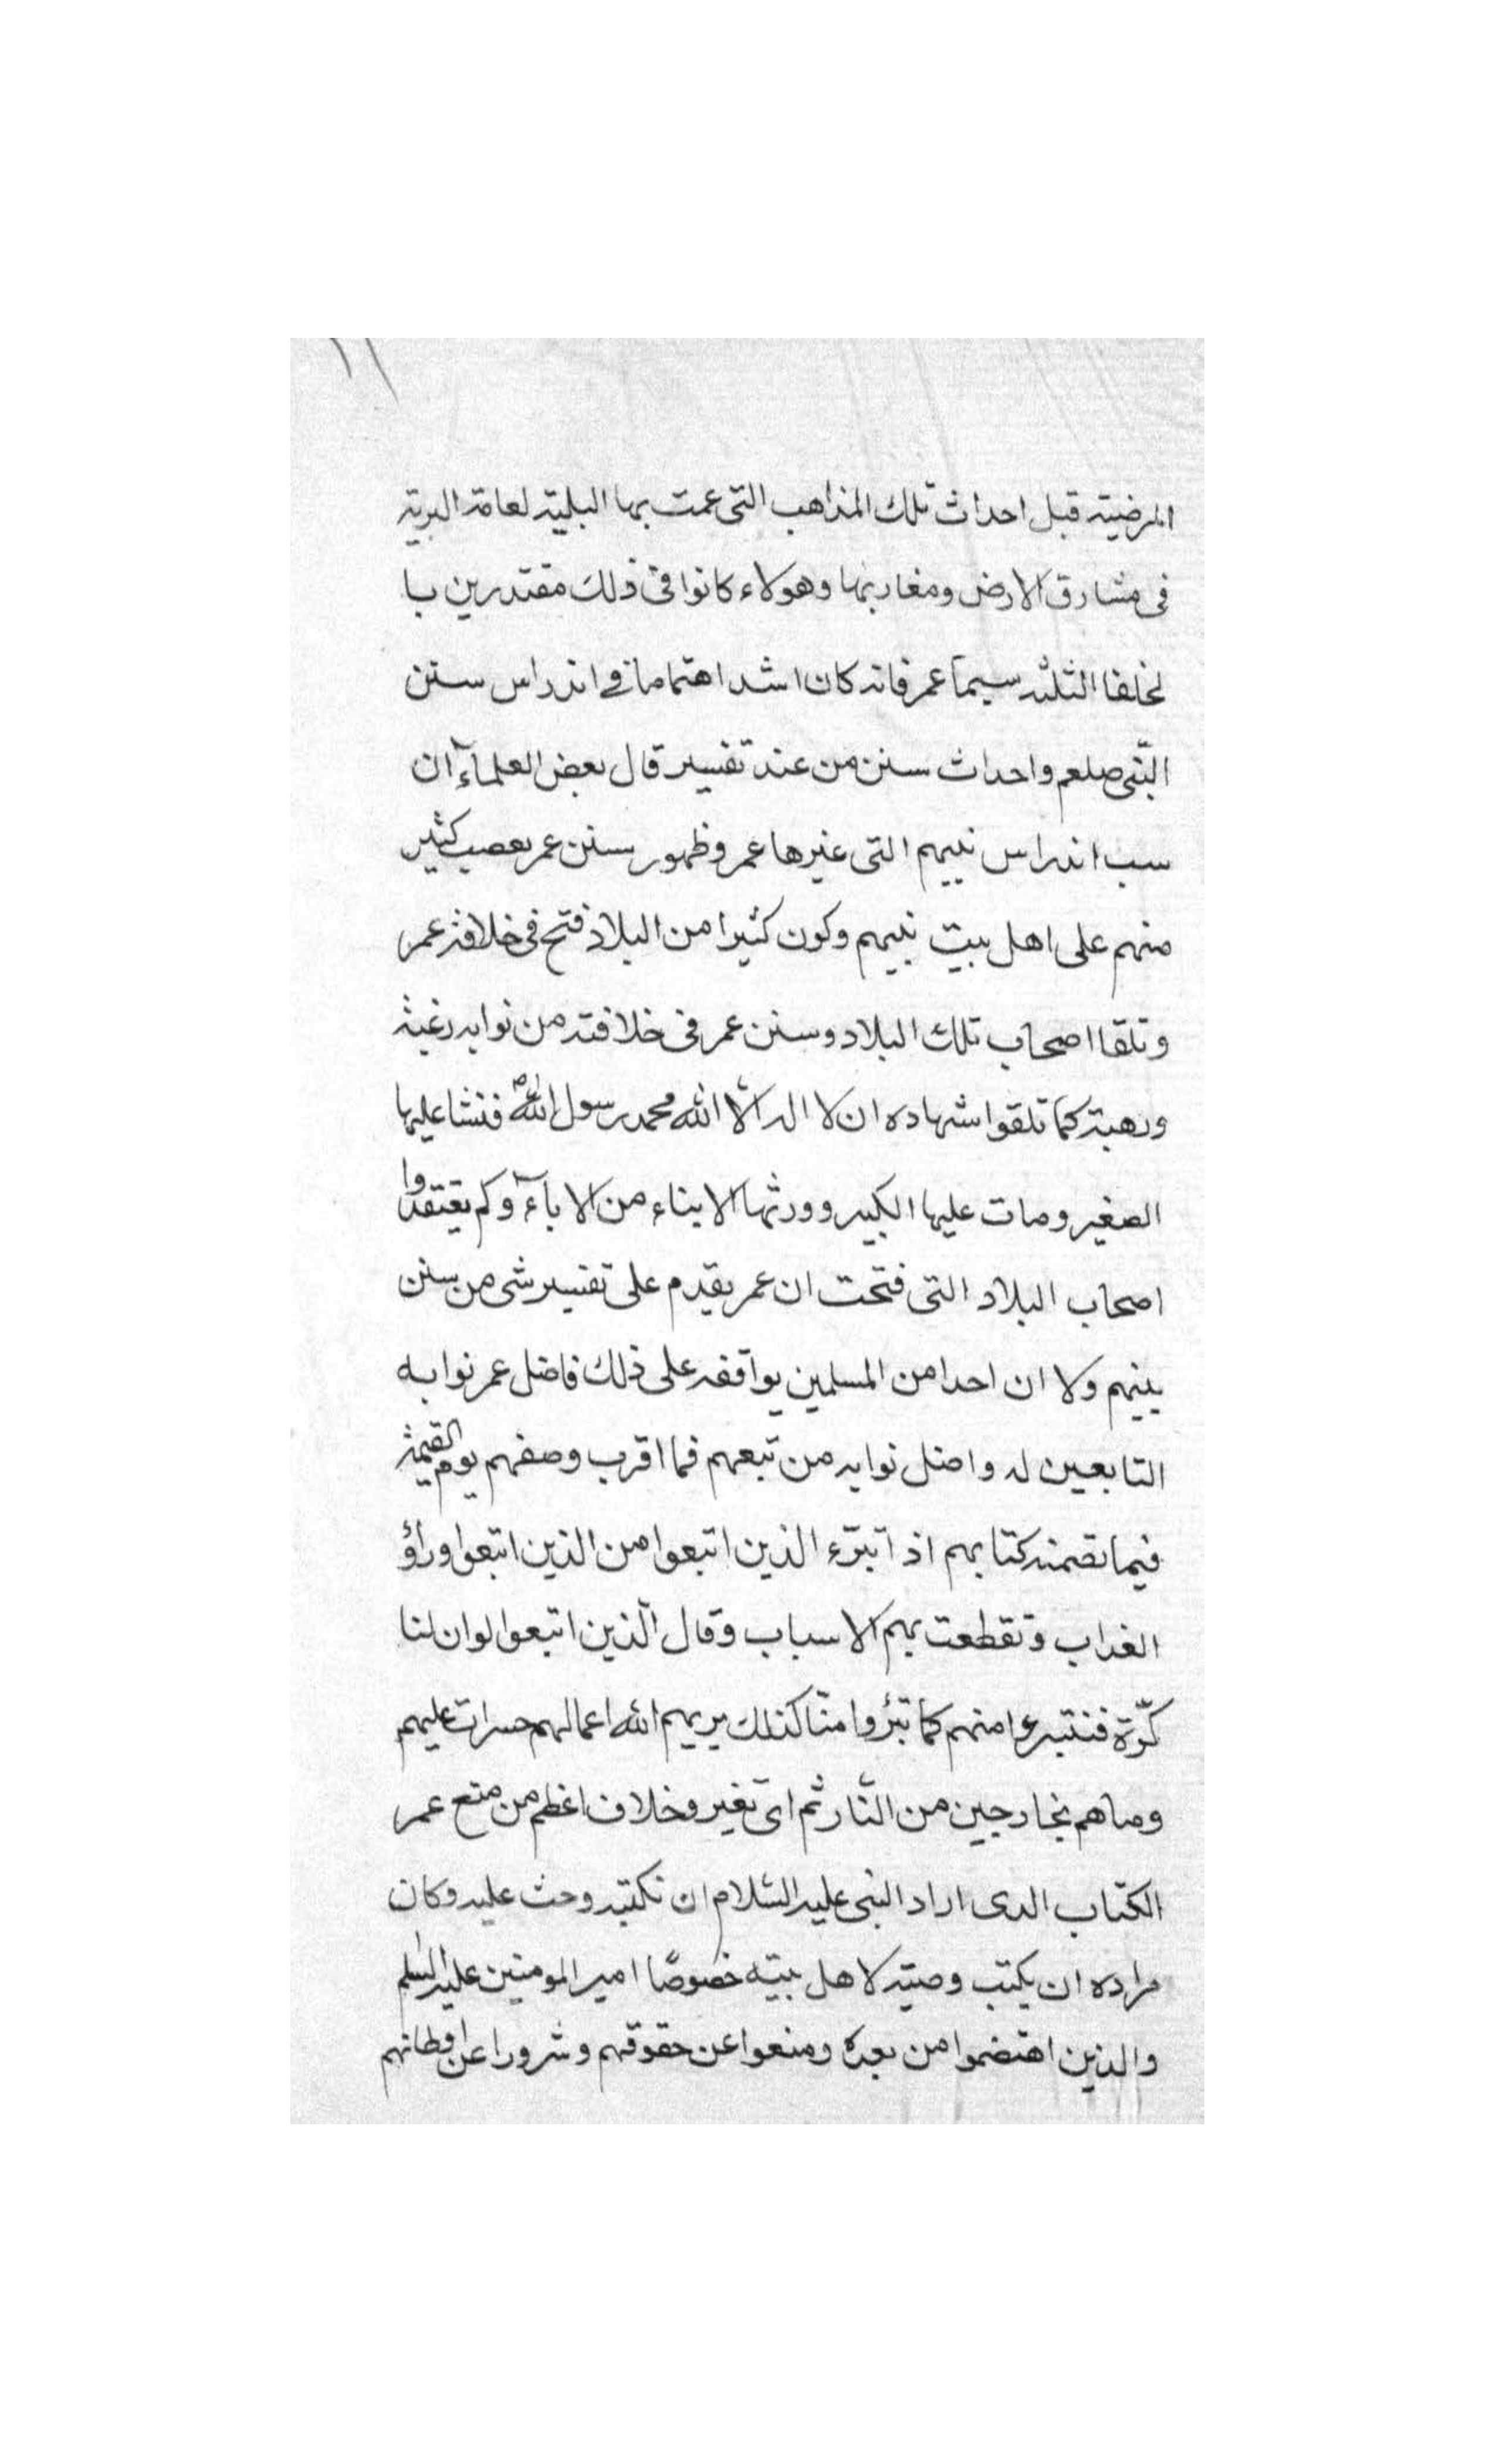 المرضية قبل احداث تلك المذاهب التى عمت بها البلية لعامة البرية
فى مشارق الارض ومغاربها وهولاء كانوا فى ذلك مقتدرين با
لخلفا الثلثه سيمآ عمر فانه كان اشد اهتماما فى اندراس سنن
النّبى صلعم واحداث سنن من عند تفسير قال بعض العلمآء ان
سب اندراس نبيهم التى غيرها عمر وظهور سنن عمر بعصب كثير
منهم على اهل بيت نبيهم وكون كثيرا من البلاد فتح فى خلافة عمر
وتلقا اصحاب تلك البلاد وسنن عمر فى خلافته من نوابه رغبة
ورهبة كما تلقوا شهاده ان لا اله الّا الله محمد رسول اللّه فنشا عليها
الصغير ومات عليها الكبير وورثها الابناء من الابآء وكم يعتقدوا
اصحاب البلاد التى فتحت ان عمر يقدم على تفسير شى من سنن
بينهم ولا ان احدا من المسلمين يوافقه على ذلك فاضل عمر نوابه
التابعين له واضل نوابه من تبعهم فما اقرب وصفهم يوم القيمة
فيما تضمنه كتابهم اذ تبرّء الذين اتبعوا من الذين اتبعوا وراؤ
العذاب وتقطعت بهم الاسباب وقال الّذين اتبعوا لو ان لنا
كرّة فنتبرءوا منهم كما تبرؤا منّا كذلك يريهم الله اعمالهم حسرات عليهم
وما هم بخارجين من النّار ثم اىّ تغير وخلاف اعظم من منع عمر
الكتاب الدى اراد النبى عليه السّلام ان نكتبه وحث عليه وكان
مراده ان يكتب وصيته لاهل بيته خصوصًا امير المومنين عليه السلم
والذين اهتضموا من بعده ومنعوا عن حقوقهم وشرورا عن اوطانهم